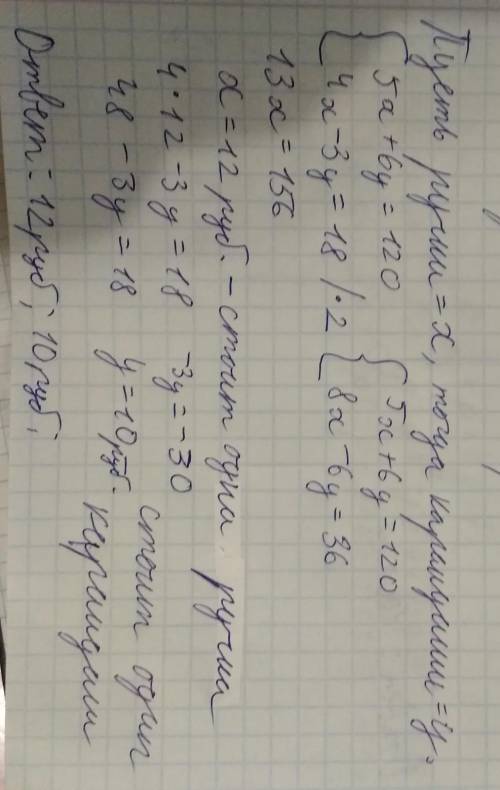 Пусть ручки = x, тогда карандаши = y.
5x + 6y = 120 5x + 6y = 120
4x - 3y = 18 /·2 8x - 6y = 36
13x = 156
x = 12 руб. - стоит одна ручка
4·12 - 3y = 18 -3y = -30
48 - 3y = 18 y = 10 руб. стоит один карандаш
Ответ: 12 руб; 10 руб;